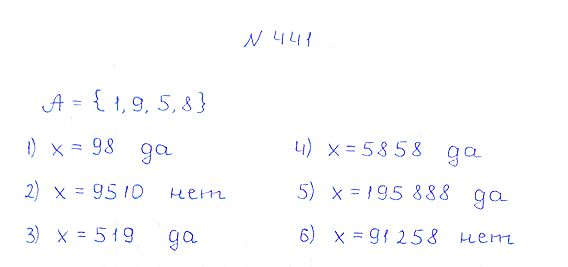 N 441
A = { 1, 9, 5, 8 }
1) x = 98 да
2) x = 9510 нет
3) x = 519 да
4) x = 5858 да
5) x = 195 888 да
6) x = 91 258 нет